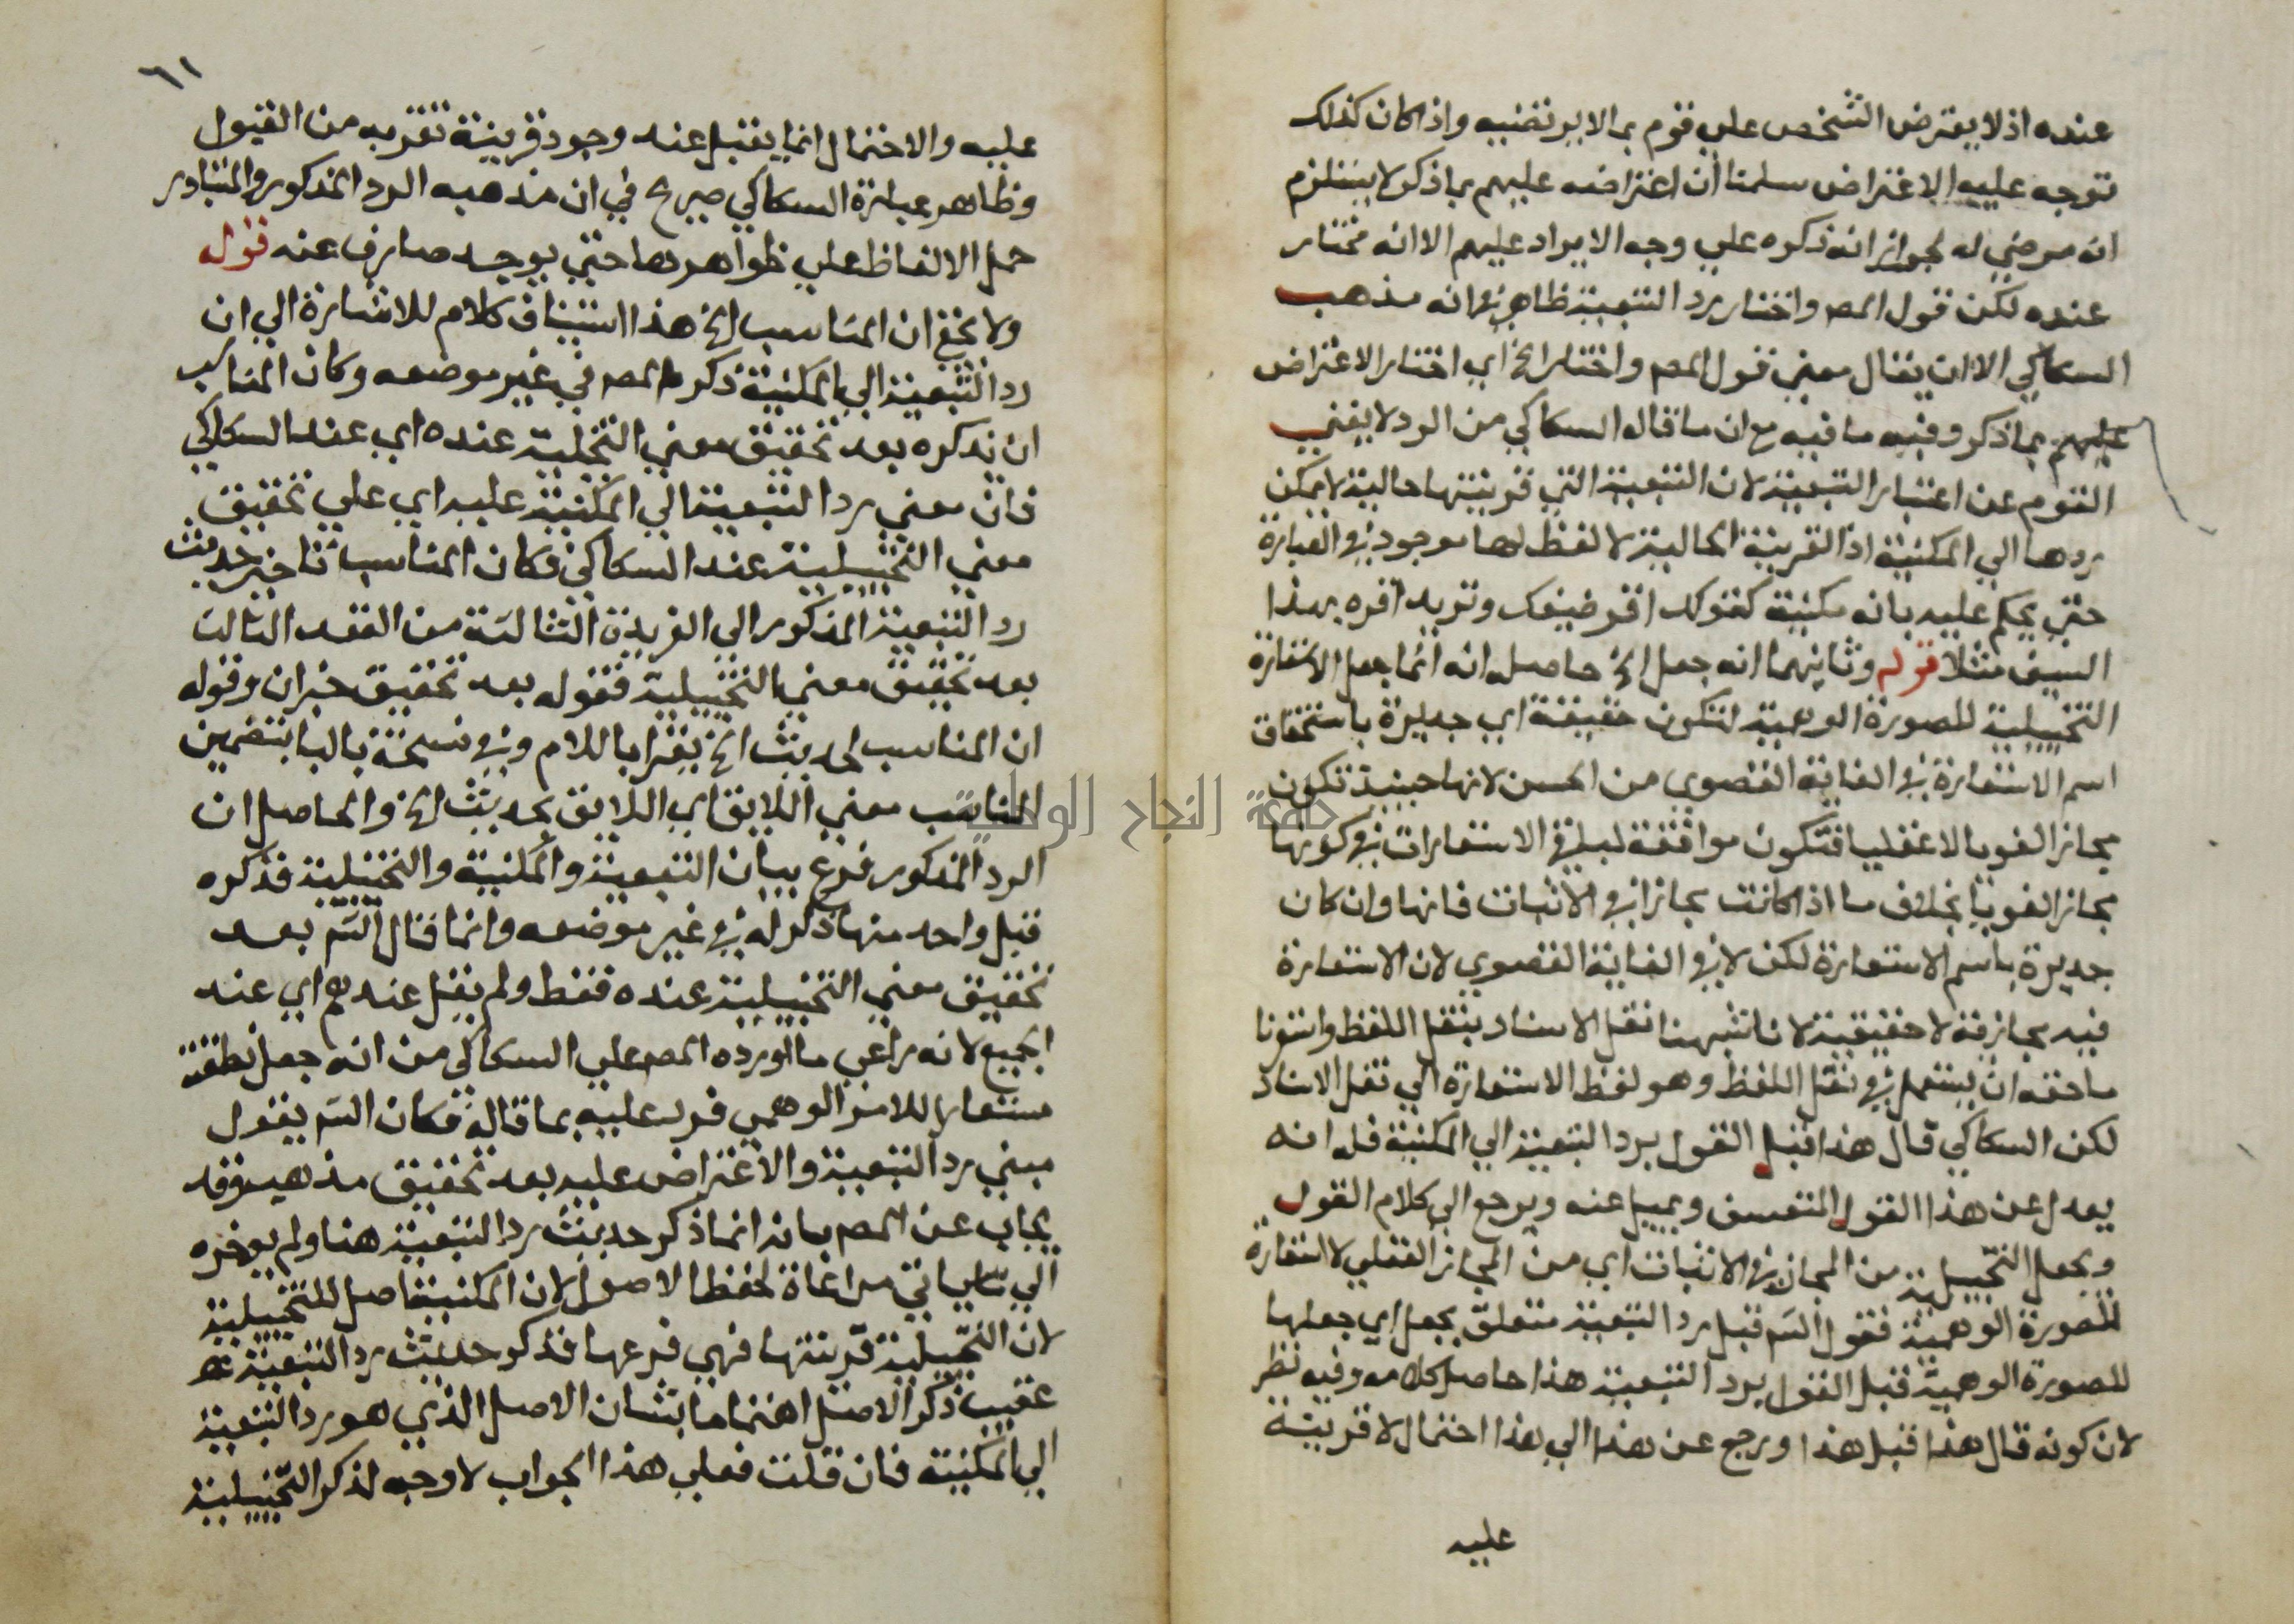 عنده اذ لا يعترض الشخص على قوم بما لا يرتضيه واذا كان كذلك
توجه عليه الاعتراض سلمنا ان اعتراضه عليهم بما ذكر لا يستلزم
انه مرضي له لجواز انه ذكره على وجه الايراد عليهم الا انه مختار
عنده لكن قول المص واختار رد التبعية ظاهر في انه مذهب
السكاكي الا ان يقال معنى قول المص واختار الخ اي اختار الاعتراض
عليهم بما ذكر وفيه ما فيه مع ان ما قاله السكاكي من الرد لا يغني
القوم عن اعتبار التبعية لان التبعية التي قرينتها حالية لا يمكن
ردها الى المكنية اذ القرينة الحالية لا لفظ لها موجود في العبارة
حتى يحكم عليه بانه مكنية كقولك اقر ضيفك وتريد اقره بهذا
السيف مثلا قوله وثانيهما انه جعل الخ حاصله انه انما جعل الاستعارة
التخييلية للصورة الوهمية لتكون حقيقة اي جديرة باستحقاق
اسم الاستعارة في الغاية القصوى من الحسن لانها حينئذ تكون
مجازا لغويا لا عقليا فتكون موافقة لبقية الاستعارات في كونها
مجازا لغويا بخلاف ما اذا كانت مجازا في الاثبات فانها وان كان
جديرة باسم الاستعارة لكن لا في الغاية القصوى لان الاستعارة
فيه مجازية لا حقيقية لانا شبهنا نقل الاسناد بنقل اللفظ واتونا
ما حقه ان يستعمل في نقل اللفظ وهو لفظ الاستعارة الى نقل الاسناد
لكن السكاكي قال هذا قبل القول برد التبعية الى المكنية فله انه
يعدل عن هذا القول المتعسف ويميل عنه ويرجع الى كلام القول
ويجعل التخييلية من المجاز في الاثبات اي من المجاز العقلي لا استعارة
للصورة الوهمية فقول الشم قبل رد التبعية متعلق بجعل اي جعلها
للصورة الوهمية قبل القول برد التبعية هذا حاصل كلامه وفيه نظر
لان كونه قال هذا قبل هذا ورجع عن هذا الى هذا احتمال لا قرينة
عليه
٦١
عليه والاحتمال انما يقبل عنده وجود قرينة تقربه من القبول
وظاهر عبارة السكاكي صريح في ان مذهبه الرد المذكور والمتبادر
حمل الالفاظ على ظواهرها حتى يوجد صارف عنه قوله
ولا يخفى ان المناسب الخ هذا استيناف كلام للاشارة الى ان
رد التبعية الى المكنية ذكره المص في غير موضعه وكان المناسب
ان يذكره بعد تحقيق معنى التخييلية عنده اي عند السكاكي
فان معنى رد التبعية الى المكنية عليه اي على تحقيق
معنى التخييلية عند السكاكي فكان المناسب تاخير حديث
رد التبعية المذكور الى الفريدة الثالثة من العقد الثالث
بعد تحقيق معنى التخييلية فقوله بعد تحقيق خبر ان وقوله
ان المناسب لحديث الخ يقرا باللام وفي نسخة بالبا بتضمين
المناسب معنى اللايق اي اللايق بحديث الخ والحاصل ان
الرد المذكور فرع بيان التبعية والمكنية والتخييلية فذكره
قبل واحد منها ذكر له في غير موضعه وانما قال الشم بعد
تحقيق معنى التخييلية عنده فقط ولم يقل عندهم اي عند
الجميع لانه راعى ما اورده المص على السكاكي من انه جعل نطقت
مستعارا للامر الوهمي فرد عليه بما قاله فكان الشم يقول
مبنى رد التبعية والاعتراض عليه بعد تحقيق مذهبه وقد
يجاب عن المص بانه انما ذكر حديث رد التبعية هنا ولم يوخره
الى ما ياتي مراعاة لحفظ الاصول لان المكنية اصل للتخييلية
لان التخييلية قرينتها فهي فرعها فذكر حديث رد التبعية
عقيب ذكر الاصل اهتماما بشان الاصل الذي هو رد التبعية
الى المكنية فان قلت فعلى هذا الجواب لا وجه لذكر التخييلية
جامعة النجاح الوطنية